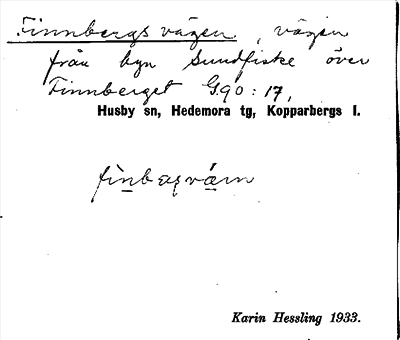 Finnbergsvägen, vägen
från byn Sundfiske över
Finnberget G90:17,
Husby sn, Hedemora tg, Kopparbergs l.
Karin Hessling 1933.